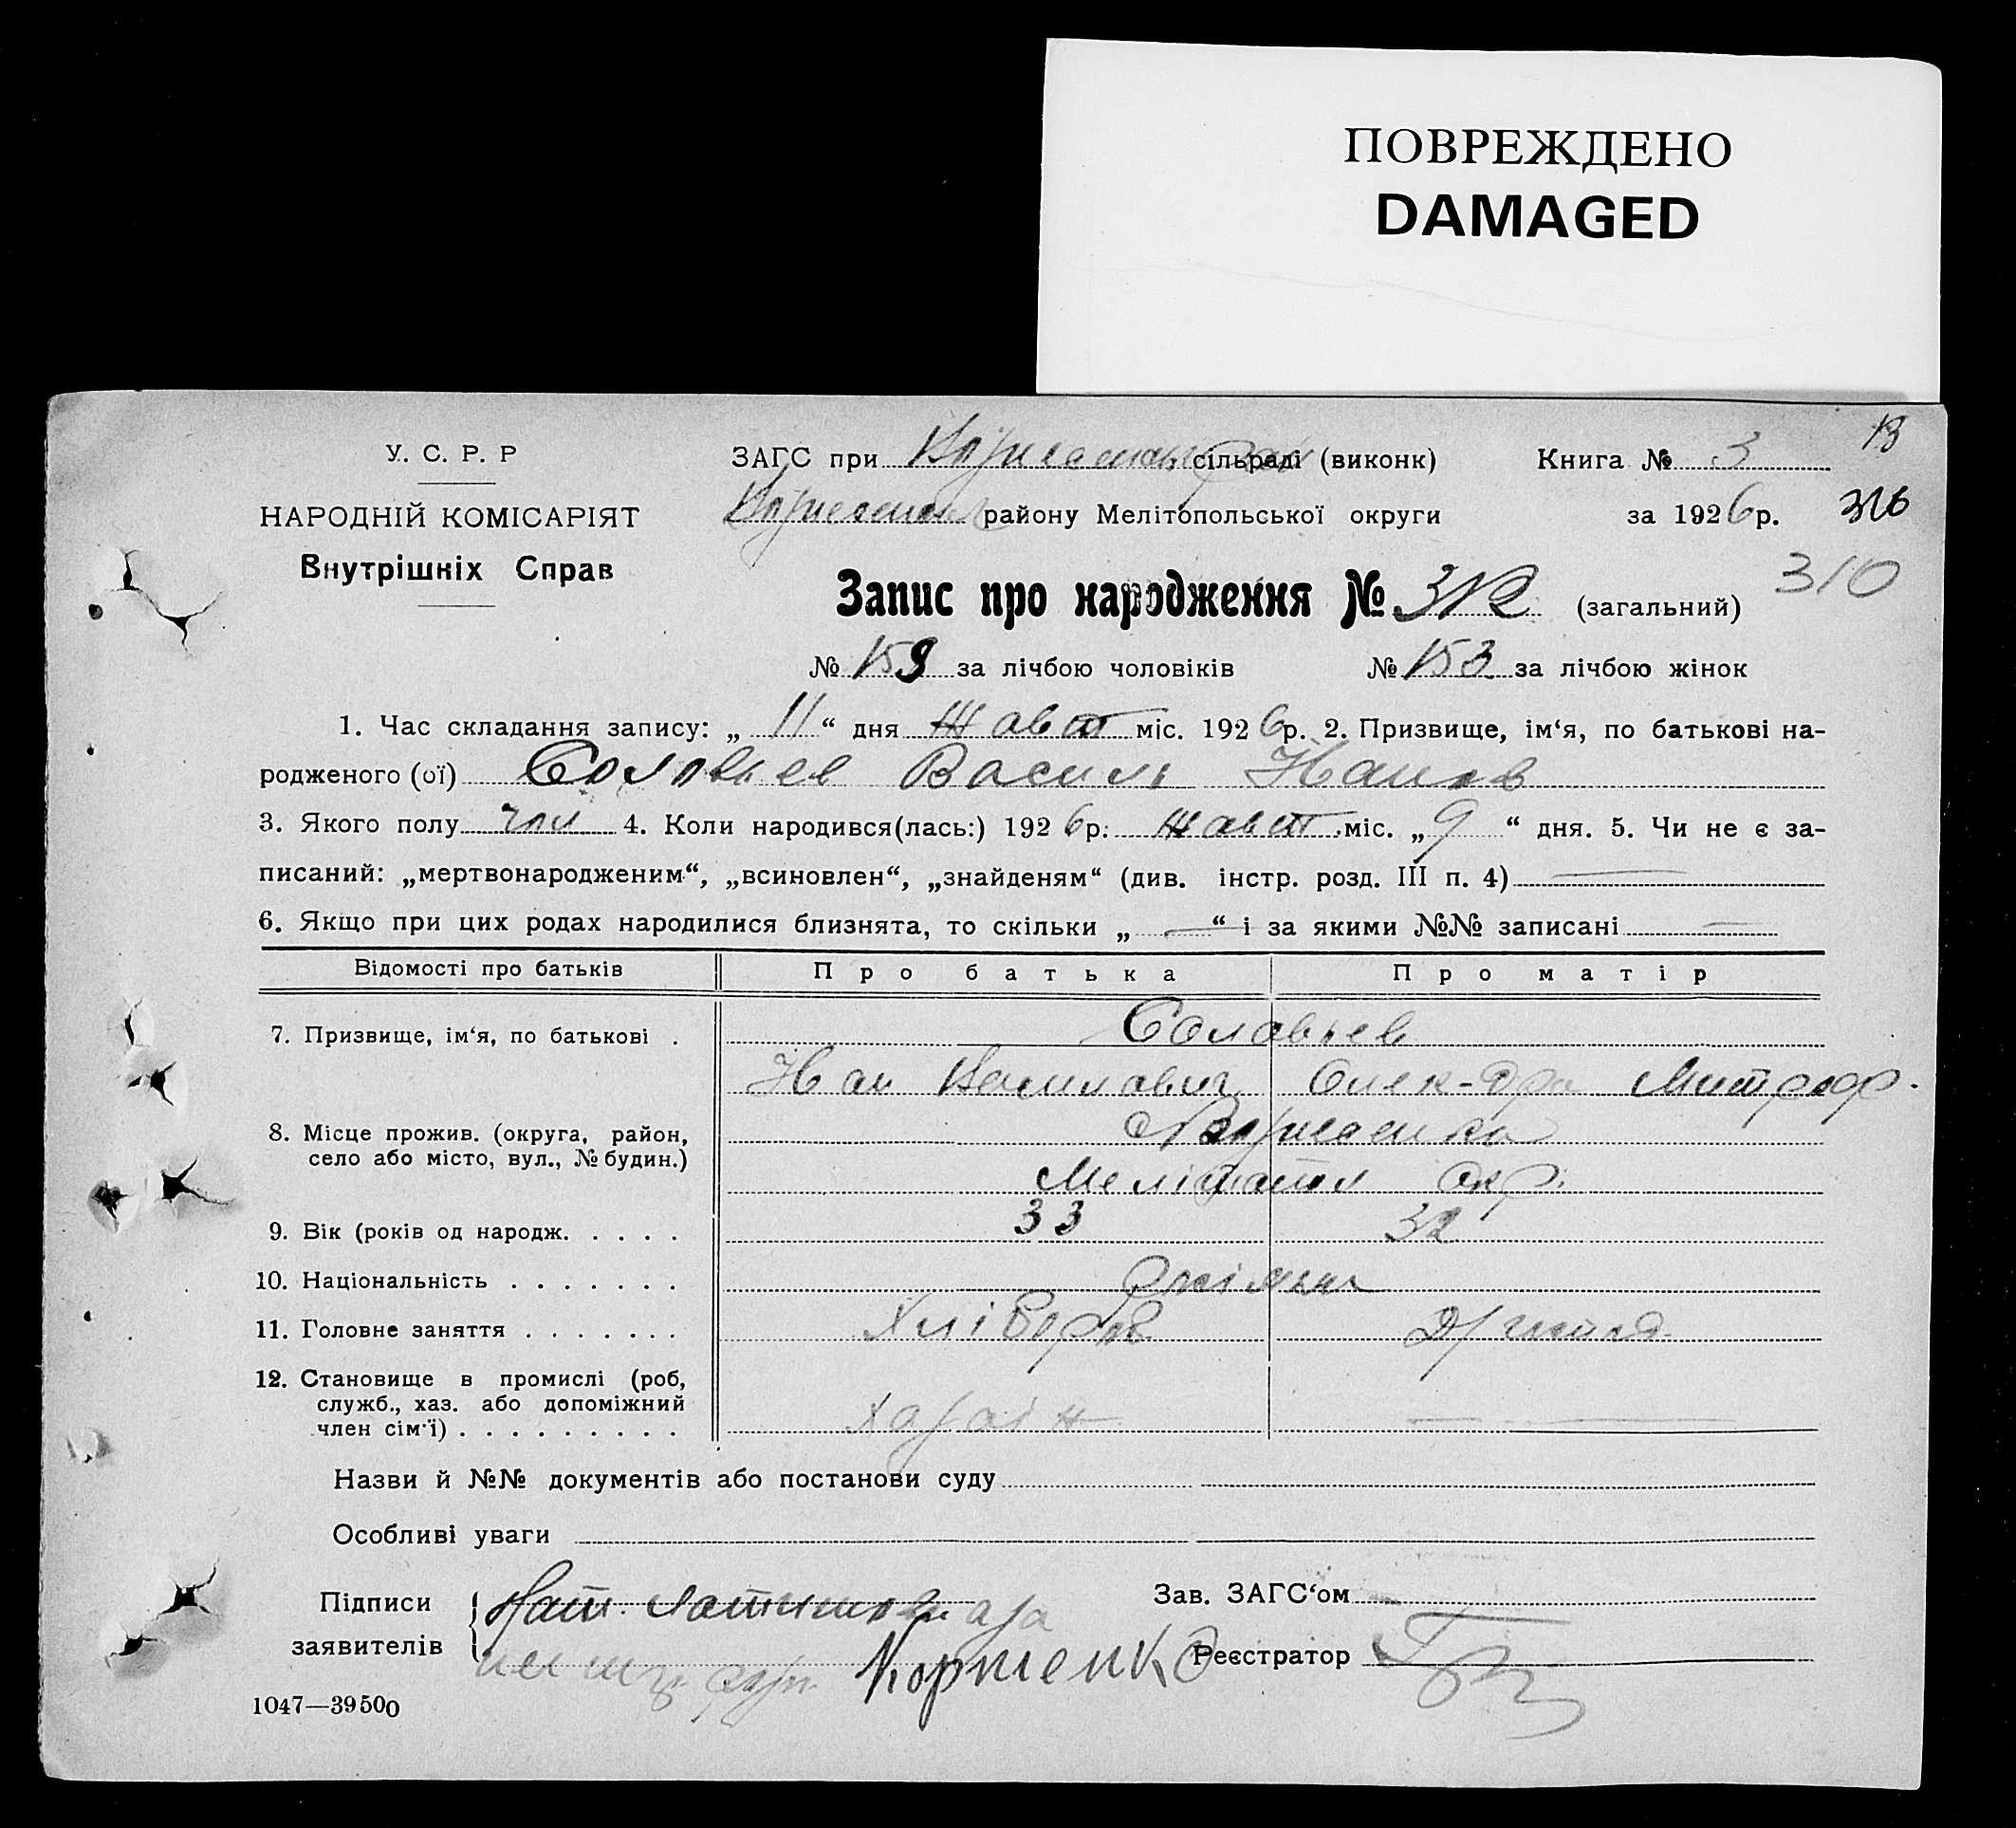 ПОВРЕЖДЕНО
DAMAGED
У. С. Р. Р
НАРОДНІЙ КОМІСАРІЯТ
Внутрішніх Справ
ЗАГС при сільраді (виконк)
Книга № 3
району Мелітопольської округи
за 1926 р. 316
310
Запис про народження № 312 (загальний)
№ 159 за лічбою чоловіків № 153 за лічбою жінок
1. Час складання запису: „ 11 “ дня міс. 1926 р. 2. Призвище, ім‘я, по батькові на-
родженого (ої) Соловьев Василь Иванов
3. Якого полу чол 4. Коли народився(лась:) 1926 р. міс. „ 9 “ дня. 5. Чи не є за-
писаний: „мертвонародженим“, „всиновлен“, „знайденям“ (див. інстр. розд. III п. 4)
6. Якщо при цих родах народилися близнята, то скільки „ — “ і за якими №№ записані —
Відомості про батьків Про батька Про матір
7. Призвище, ім‘я, по батькові . Соловьев
Иван Василович Олек-дра Митроф.
8. Місце прожив. (округа, район,
село або місто, вул., № будин.)
Мелітопол окр.
9. Вік (років од народж. . . . . 33 32
10. Національність . . . . . . .
11. Головне заняття . . . . . . . Хлібороб
12. Становище в промислі (роб,
служб., хаз. або допоміжний
член сім‘ї) . . . . . . . . . Хазяін —
Назви й №№ документів або постанови суду
Особливі уваги
Підписи
заявителів
Зав. ЗАГС‘ом
Реєстратор
1047—39500